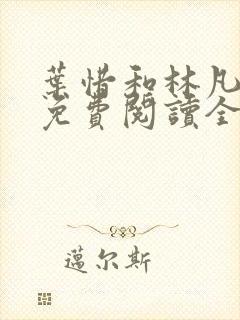 葉惜和林凡
免費閱讀全
邁尔斯